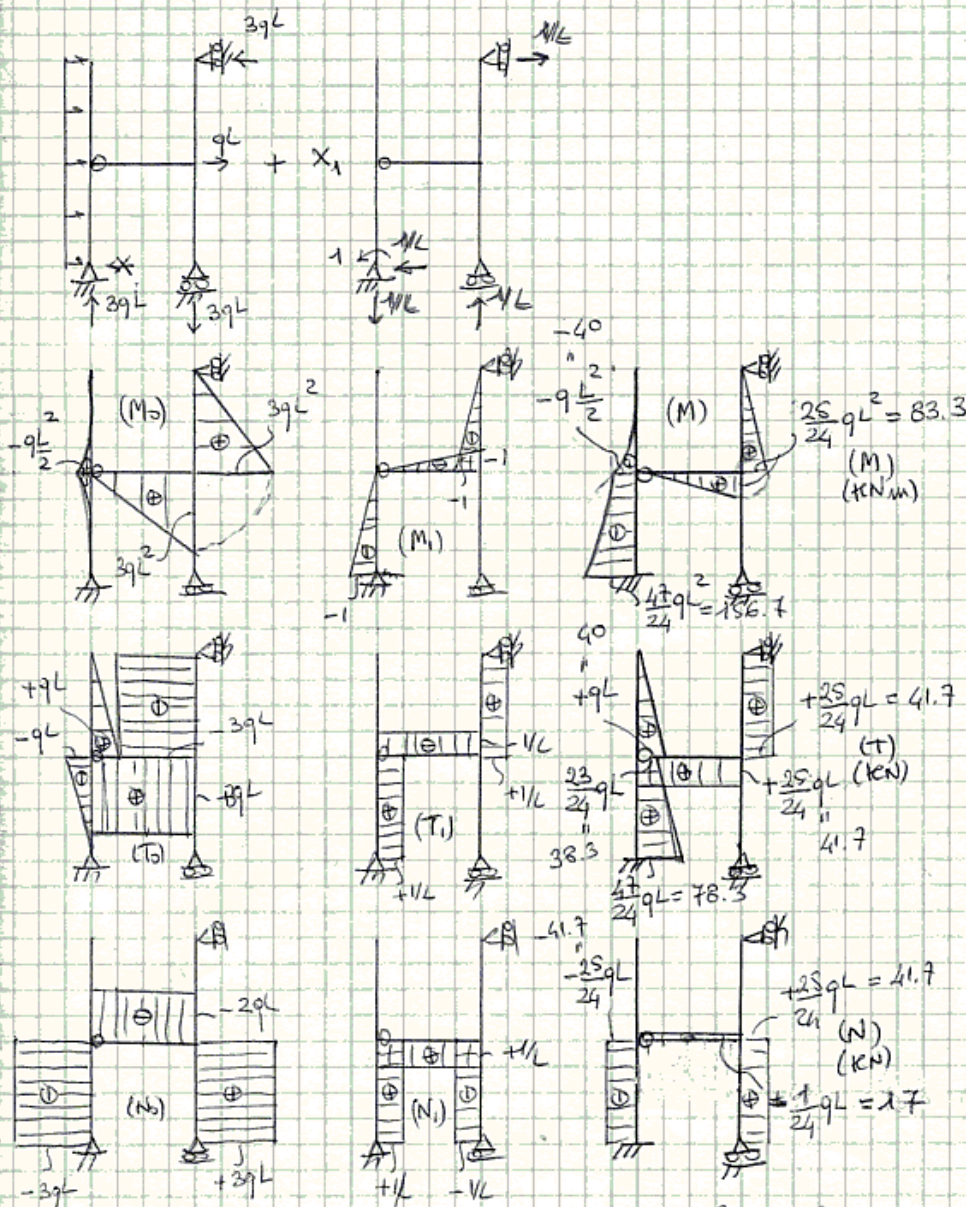 3qL
1/L
qL
+ X₁
1
1/L
3qL
3qL
1/L
1/L
-40
"
-qL²/2
(M₀)
3qL²
⊕
⊕
3qL²
-1
-1
(M₁)
-1
-qL²/2
(M)
25/24 qL² = 83.3
(M)
(KNm)
47/24 qL² = 156.7
+qL
-qL
-3qL
(T₀)
-1/L
+1/L
(T₁)
+1/L
40
"
+qL
+25/24 qL = 41.7
(T)
(KN)
23/24 qL
"
38.3
+25/24 qL
"
41.7
47/24 qL = 78.3
-2qL
(N₀)
-3qL
+3qL
+1/L
(N₁)
+1/L
-1/L
-41.7
"
-25/24 qL
+25/24 qL = 41.7
(N)
(KN)
1/24 qL = 1.7